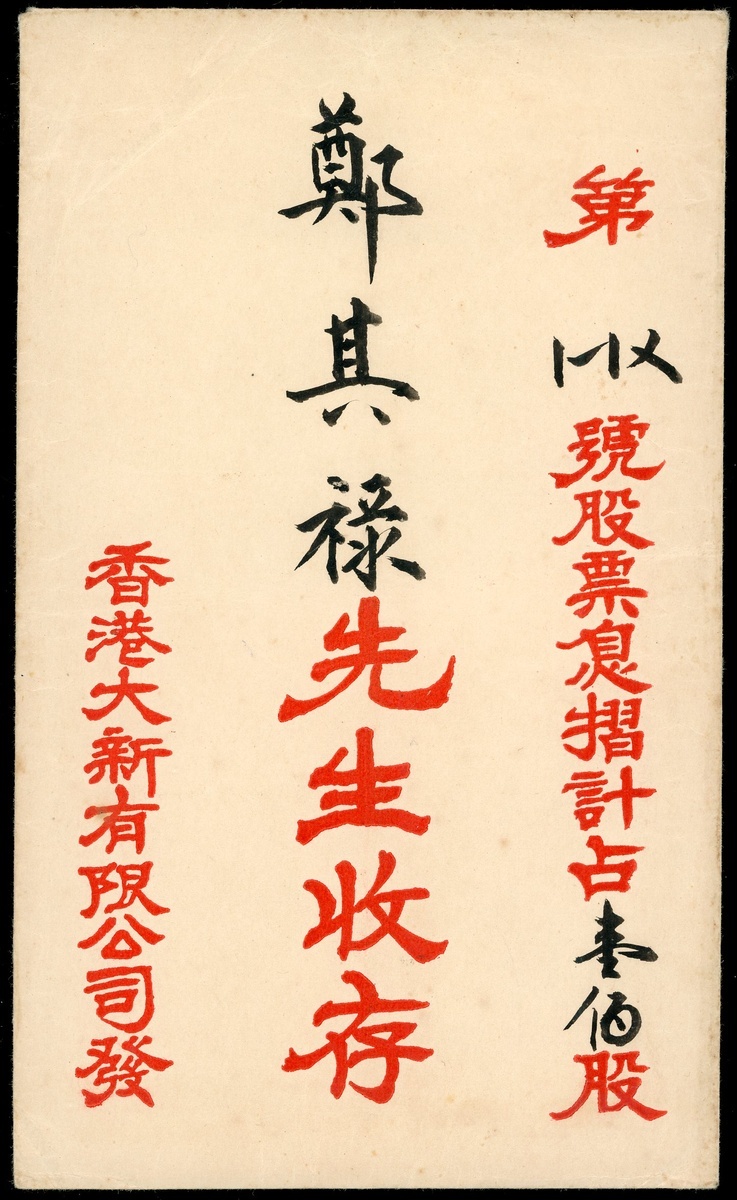 第〡一〡〤號股票息摺計占壹佰股
鄭其祿先生收存
香港大新有限公司發